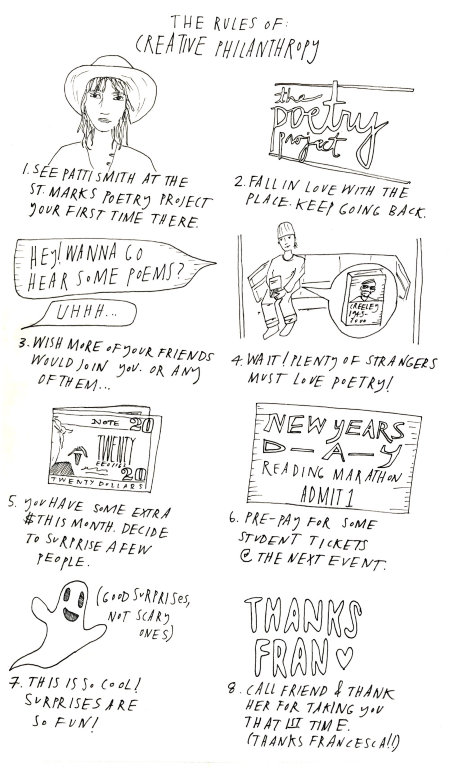 THE RULES OF:
CREATIVE PHILANTHROPY
the
poetry
project
1. SEE PATTI SMITH AT THE
ST. MARKS POETRY PROJECT
YOUR FIRST TIME THERE.
2. FALL IN LOVE WITH THE
PLACE. KEEP GOING BACK.
HEY! WANNA GO
HEAR SOME POEMS?
UHHH...
3. WISH MORE OF YOUR FRIENDS
WOULD JOIN YOU. OR ANY
OF THEM...
CREELEY
1945-
4. WAIT! PLENTY OF STRANGERS
MUST LOVE POETRY!
NOTE 20
TWENTY
20
TWENTY DOLLARS
5. YOU HAVE SOME EXTRA
$ THIS MONTH. DECIDE
TO SURPRISE A FEW
PEOPLE.
NEW YEARS
D-A-Y
READING MARATHON
ADMIT 1
6. PRE-PAY FOR SOME
STUDENT TICKETS
@ THE NEXT EVENT.
(GOOD SURPRISES,
NOT SCARY
ONES)
7. THIS IS SO COOL!
SURPRISES ARE
SO FUN!
THANKS
FRAN ♡
8. CALL FRIEND & THANK
HER FOR TAKING YOU
THAT 1ST TIME.
(THANKS FRANCESCA!!)